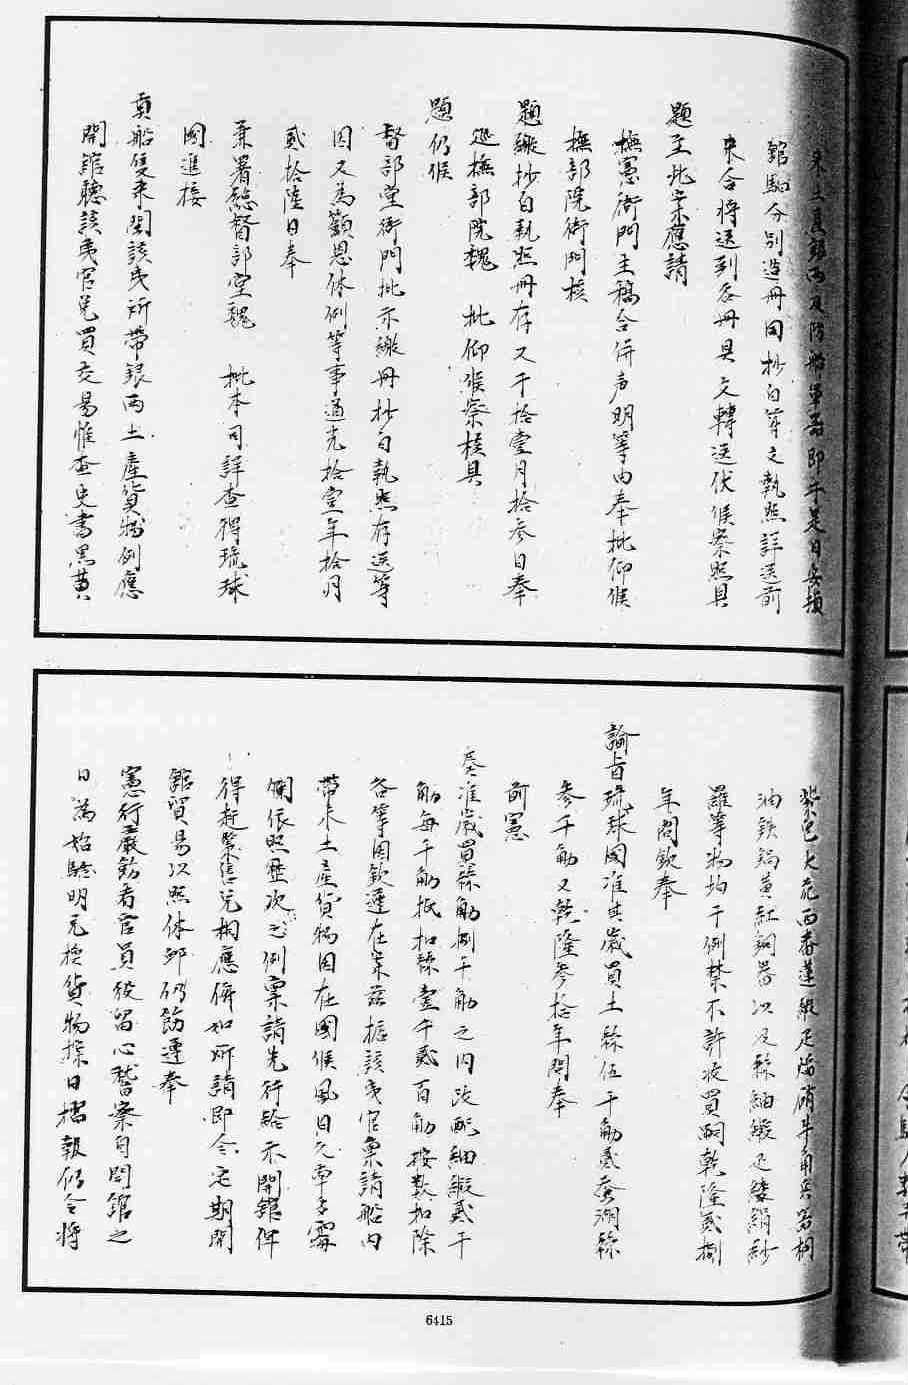 來土產銀兩及防船軍器即于是日安頓
舘驛分別造冊同抄白符文執照詳送前
來合將送到各冊具文轉送伏候察照具
題至此案應請
撫憲衙門主稿合併声明等由奉批仰候
撫部院衙門核
題繳抄白執照冊存又于拾壹月拾叁日奉
巡撫部院魏　批仰候察核具
題仍候
督部堂衙門批示繳冊抄白執照存送等
因又為籲恩体例等事道光拾壹年拾月
貳拾陸日奉
兼署總督部堂魏　批本司詳查得琉球
國進接
貢船隻來閩該夷所帶銀兩土產貨物例應
開舘聽該夷官兌買交易惟查史書黑黃
紫色大花西番蓮緞疋焰硝牛角兵器桐
油鉄鍋黃紅銅器以及絲紬緞疋綾絹紗
羅等物均干例禁不許收買嗣乾隆貳捌
年間欽奉
諭旨琉球國准其歲買土絲伍千觔貳蚕湖絲
叁千觔又乾隆叁拾年間奉
前憲
奏准歲買絲觔捌千觔之内改配紬緞貳千
觔每千觔抵扣絲壹千貳百觔按数扣除
各等因欽遵在案茲據該夷官稟請船内
帶來土產貨物因在國候風日久車子霉
爛依照歷次之例稟請先行給示開舘俾
得趕緊售兌相應俯如所請即令定期開
舘貿易以照体卹仍飭遵奉
憲行嚴飭看官員役留心稽察自開舘之
日為始驗明兌換貨物探日摺報仍令將
6415